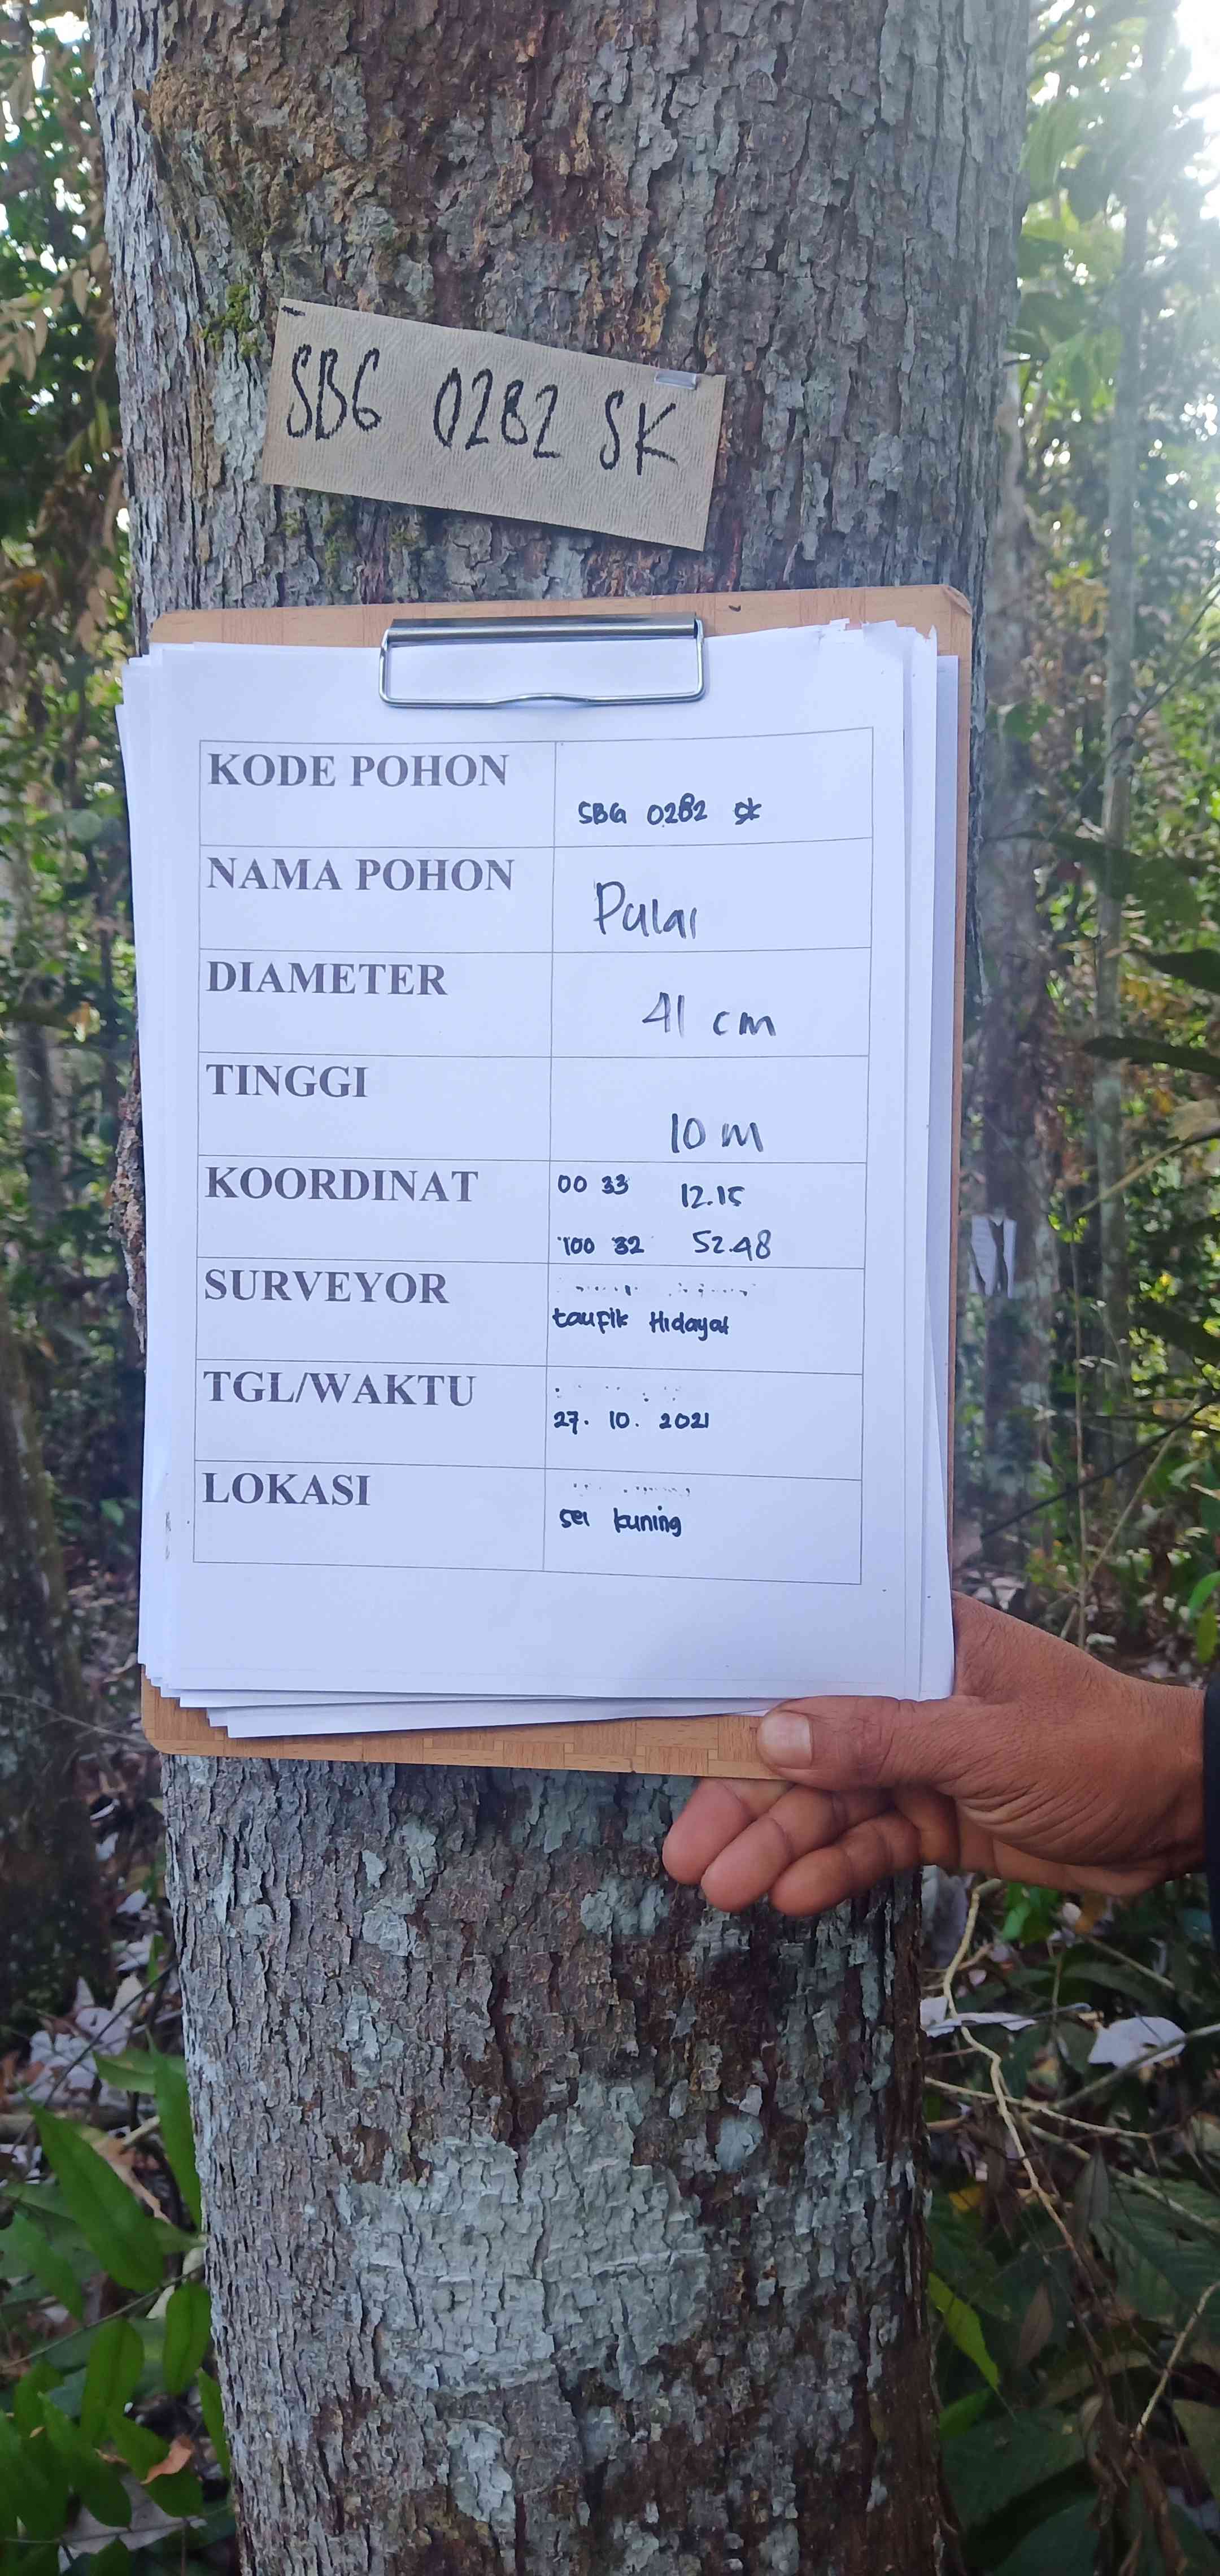 SBG 0282 SK
KODE POHON
SBG 0282 SK
NAMA POHON
Pulai
DIAMETER
41 cm
TINGGI
10 m
KOORDINAT
00 33 12.15
100 32 52.48
SURVEYOR
taufik Hidayat
TGL/WAKTU
27. 10. 2021
LOKASI
sei kuning